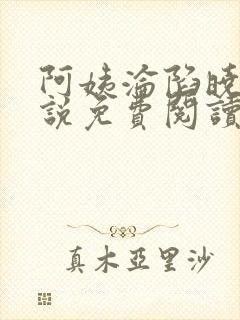 阿姨淪陷曉
說免費閱讀
真木亞里沙